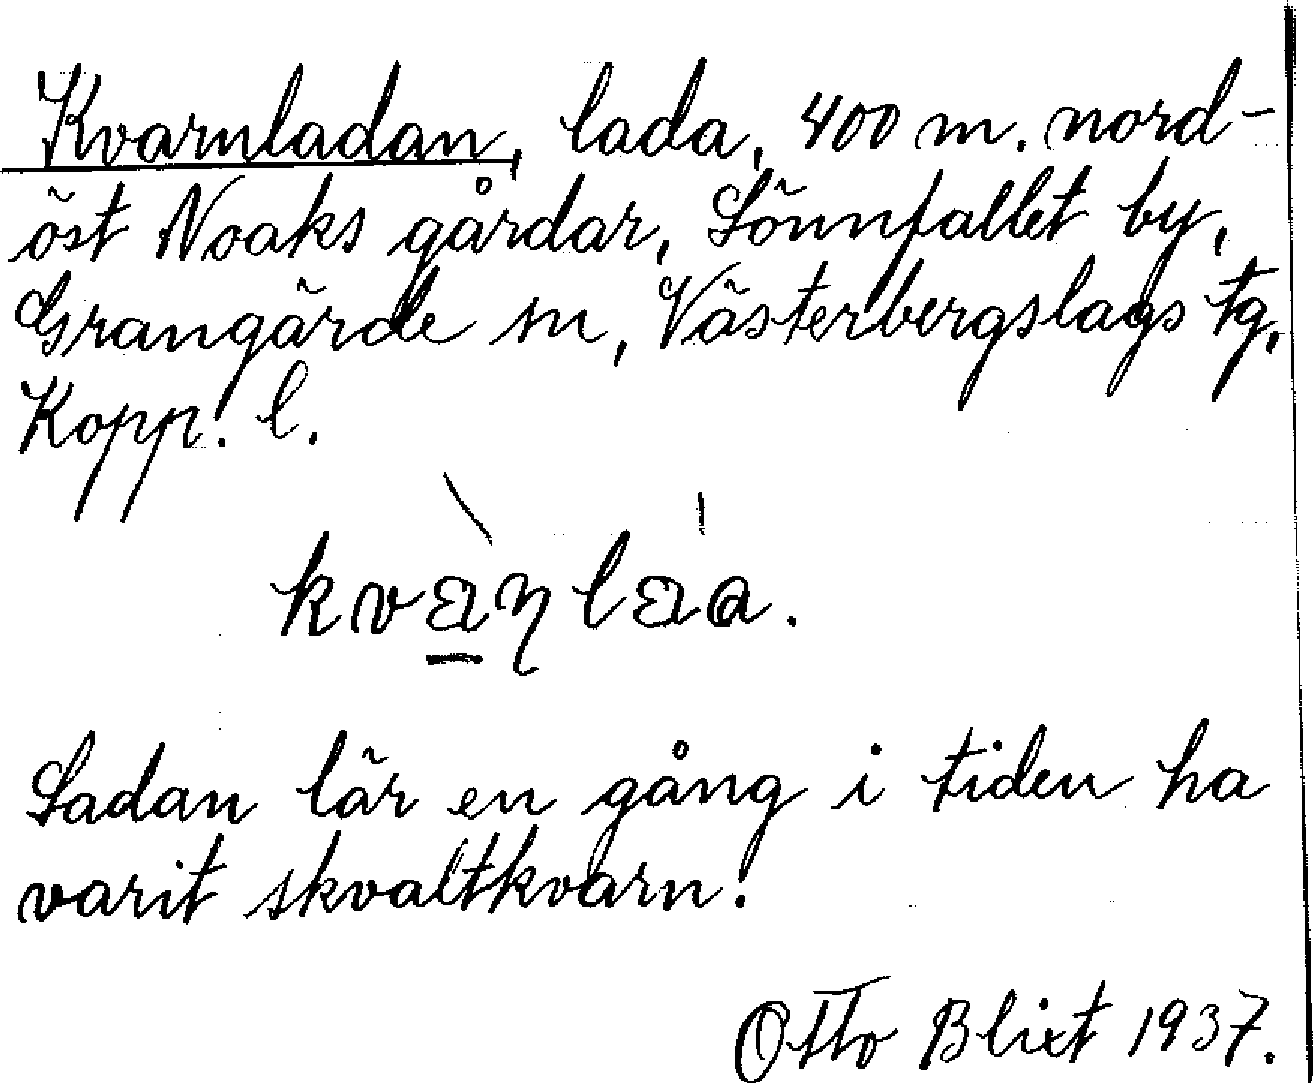 Kvarnladan, lada, 400 m. nord-
öst Noaks gårdar, Lönnfallet by,
Grangärde sn, Västerbergslags tg,
Kopp. l.
kvàṇlàa.
Ladan lär en gång i tiden ha
varit skvaltkvarn.
Otto Blixt 1937.